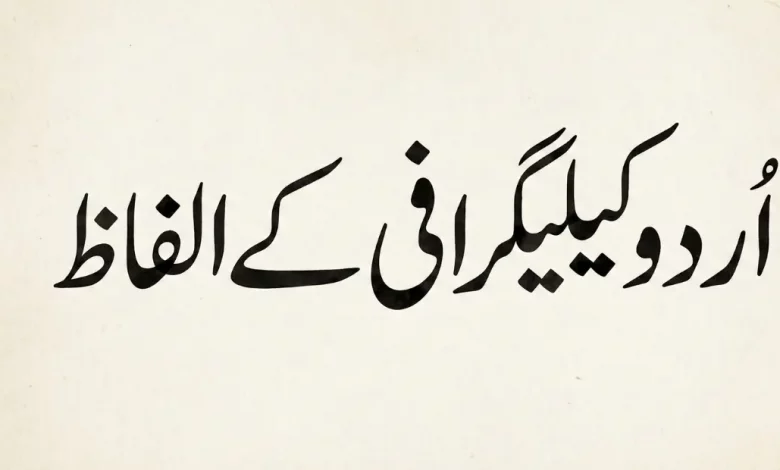 اُردو کیلیگرافی کے الفاظ